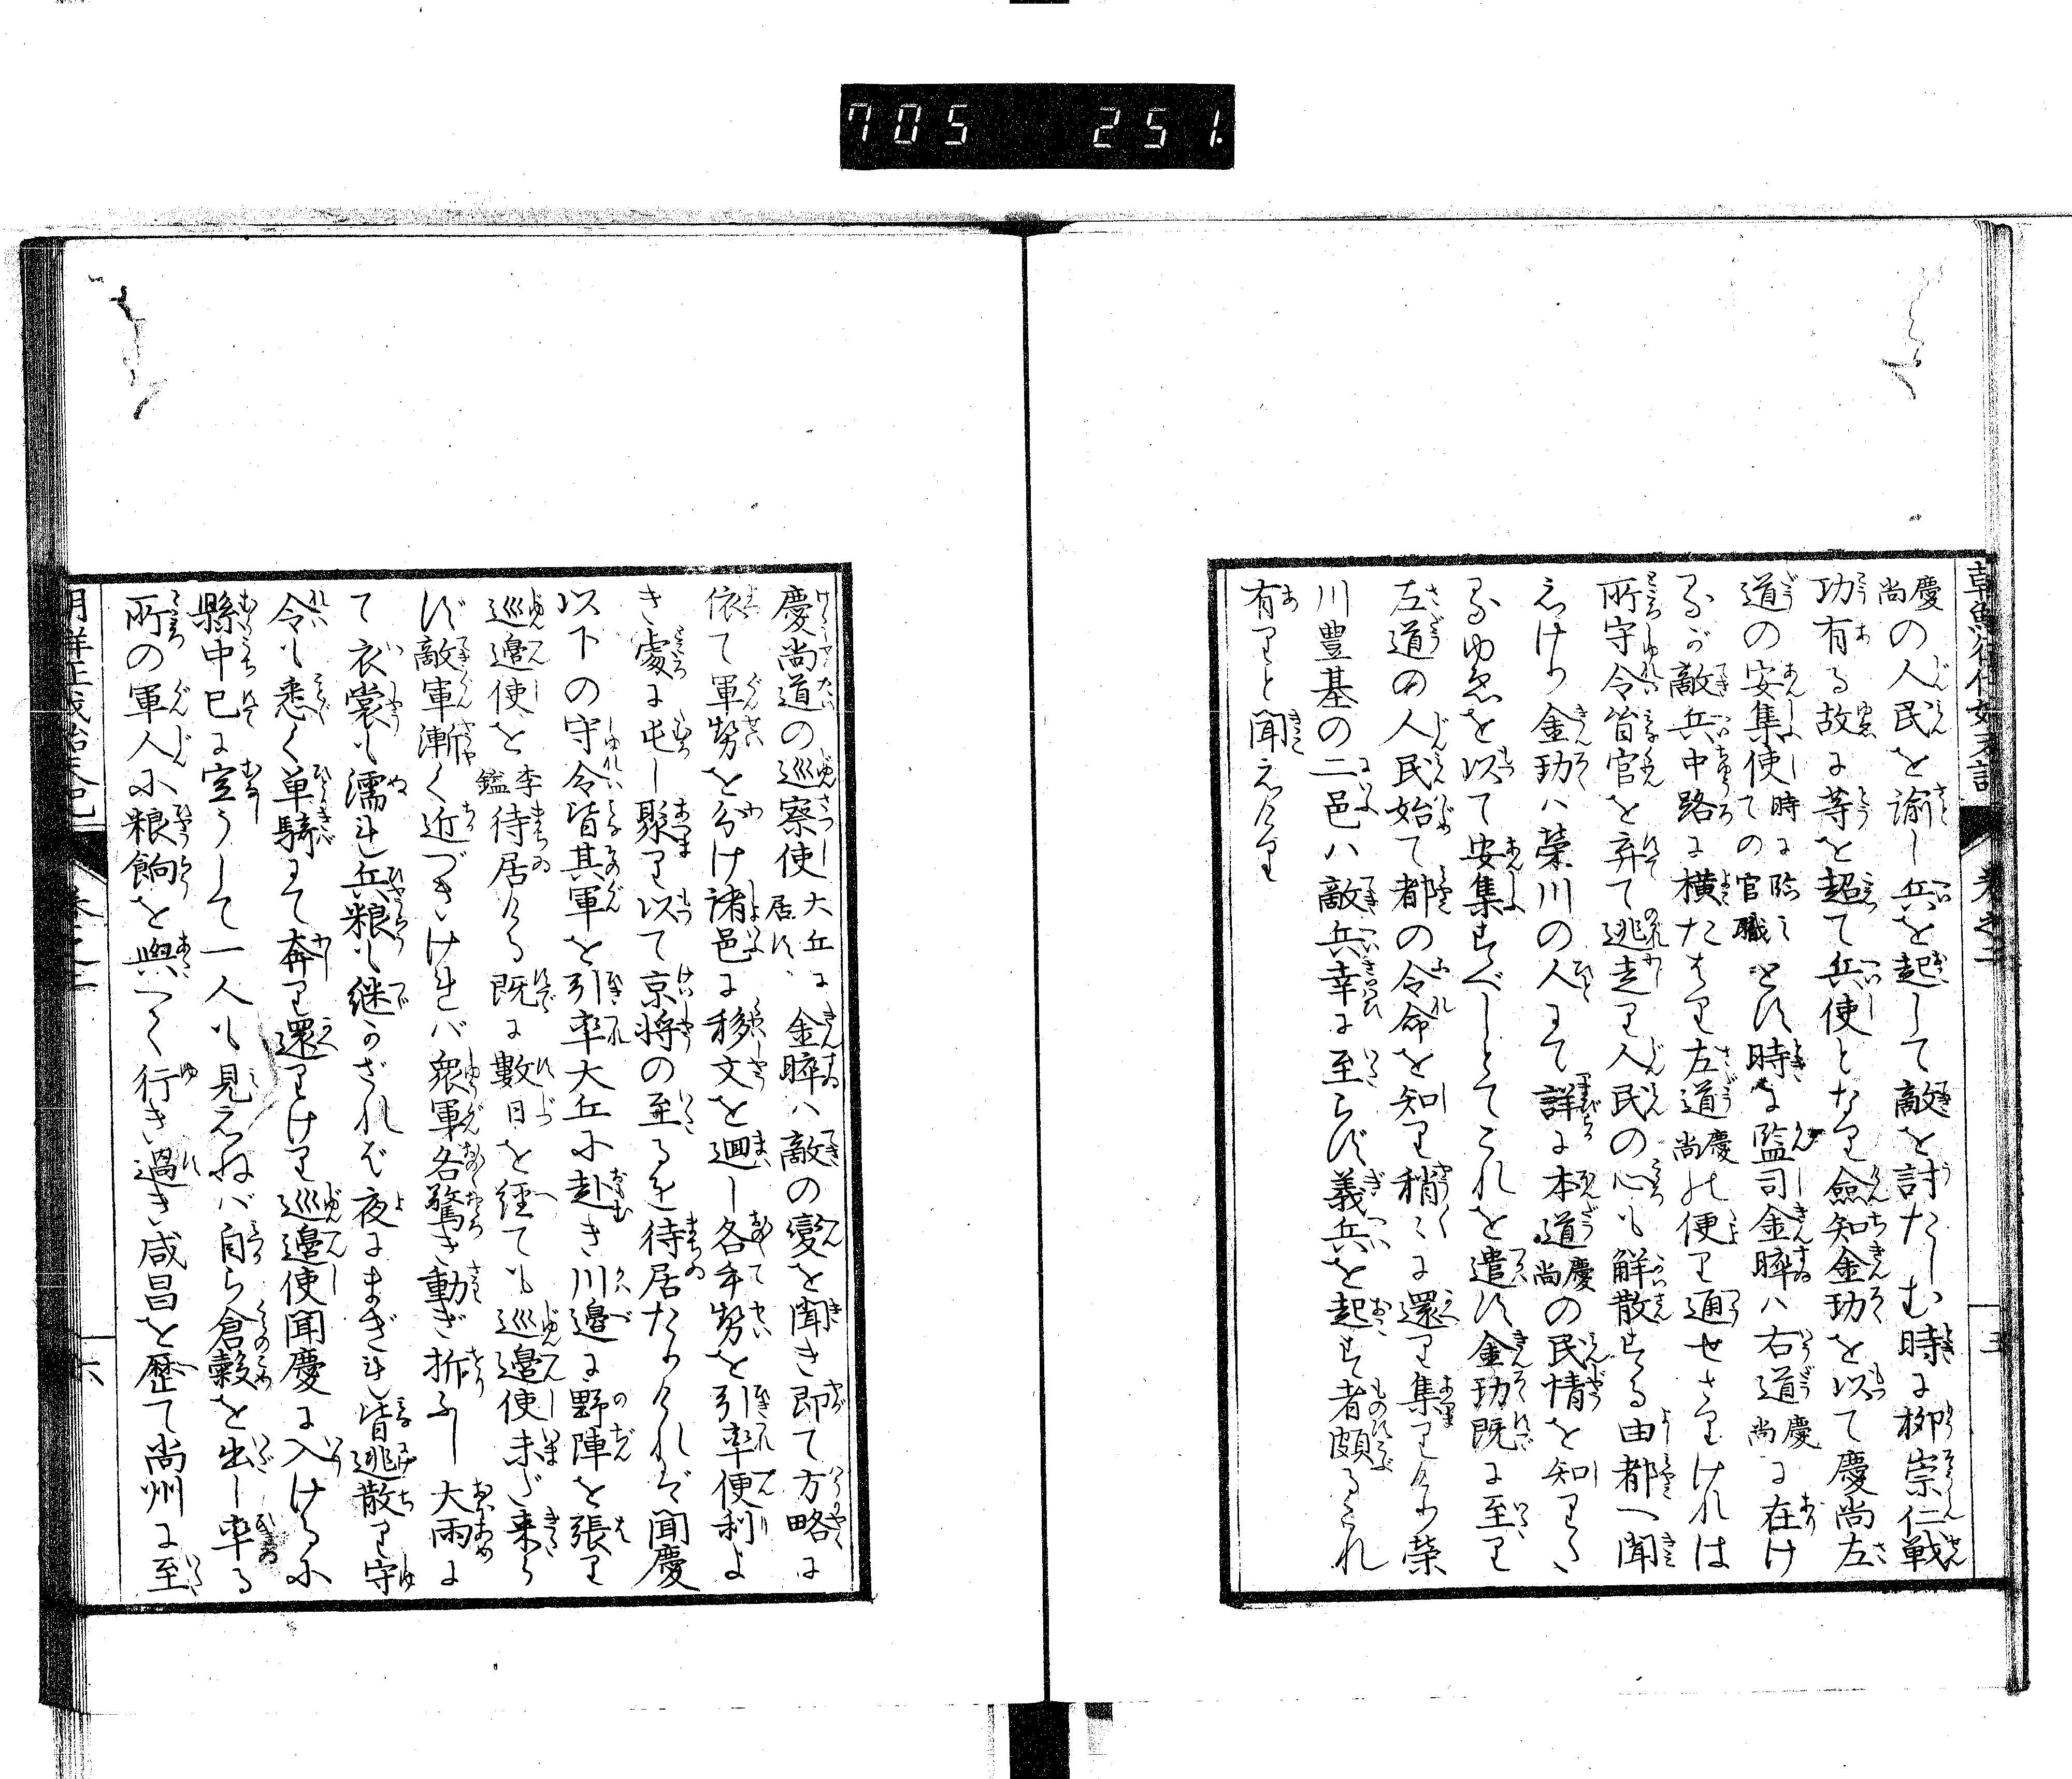 705 251.
朝鮮征伐始末記 巻之二
慶尚の人民を諭し兵を起して敵を討たしむ時に柳崇仁戦
功有る故に等を超て兵使となり僉知金玏を以て慶尚左
道の安集使時に臨ての官職とす時に監司金睟ハ右道慶尚に在け
るが敵兵中路に横たはり左道慶尚の便り通せさりけれは
所守令皆官を弃て逃走り人民の心も解散する由都へ聞
えけり金玏ハ榮川の人にて詳に本道慶尚の民情を知りた
るゆゑを以て安集すべしとてこれを遣す金玏既に至り
左道の人民始て都の令命を知り稍々に還り集りけり榮
川豊基の二邑ハ敵兵幸に至らず義兵を起す者頗るこれ
有りと聞えけり
慶尚道の巡察使大丘に居す金睟ハ敵の變を聞き即て方略に
依て軍勢を分け諸邑に移文を廻し各手勢を引率便利よ
き處に屯し聚り以て京将の至るを待居たりけれバ聞慶
以下の守令皆其軍を引率大丘に赴き川邉に野陣を張り
巡邉使を李鎰待居ける既に數日を經ても巡邉使未だ来ら
ず敵軍漸く近づきけれバ衆軍各驚き動ぎ折ふし大雨に
て衣裳も濡れ兵粮も継かざれば夜にまぎれ皆逃散り守
令も悉く単騎にて奔り還りけり巡邉使聞慶に入けるに
縣中已に空うして一人も見えねバ自ら倉糓を出し率る
所の軍人に粮餉を與へて行き過き咸昌を歴て尚州に至
巻之二
六